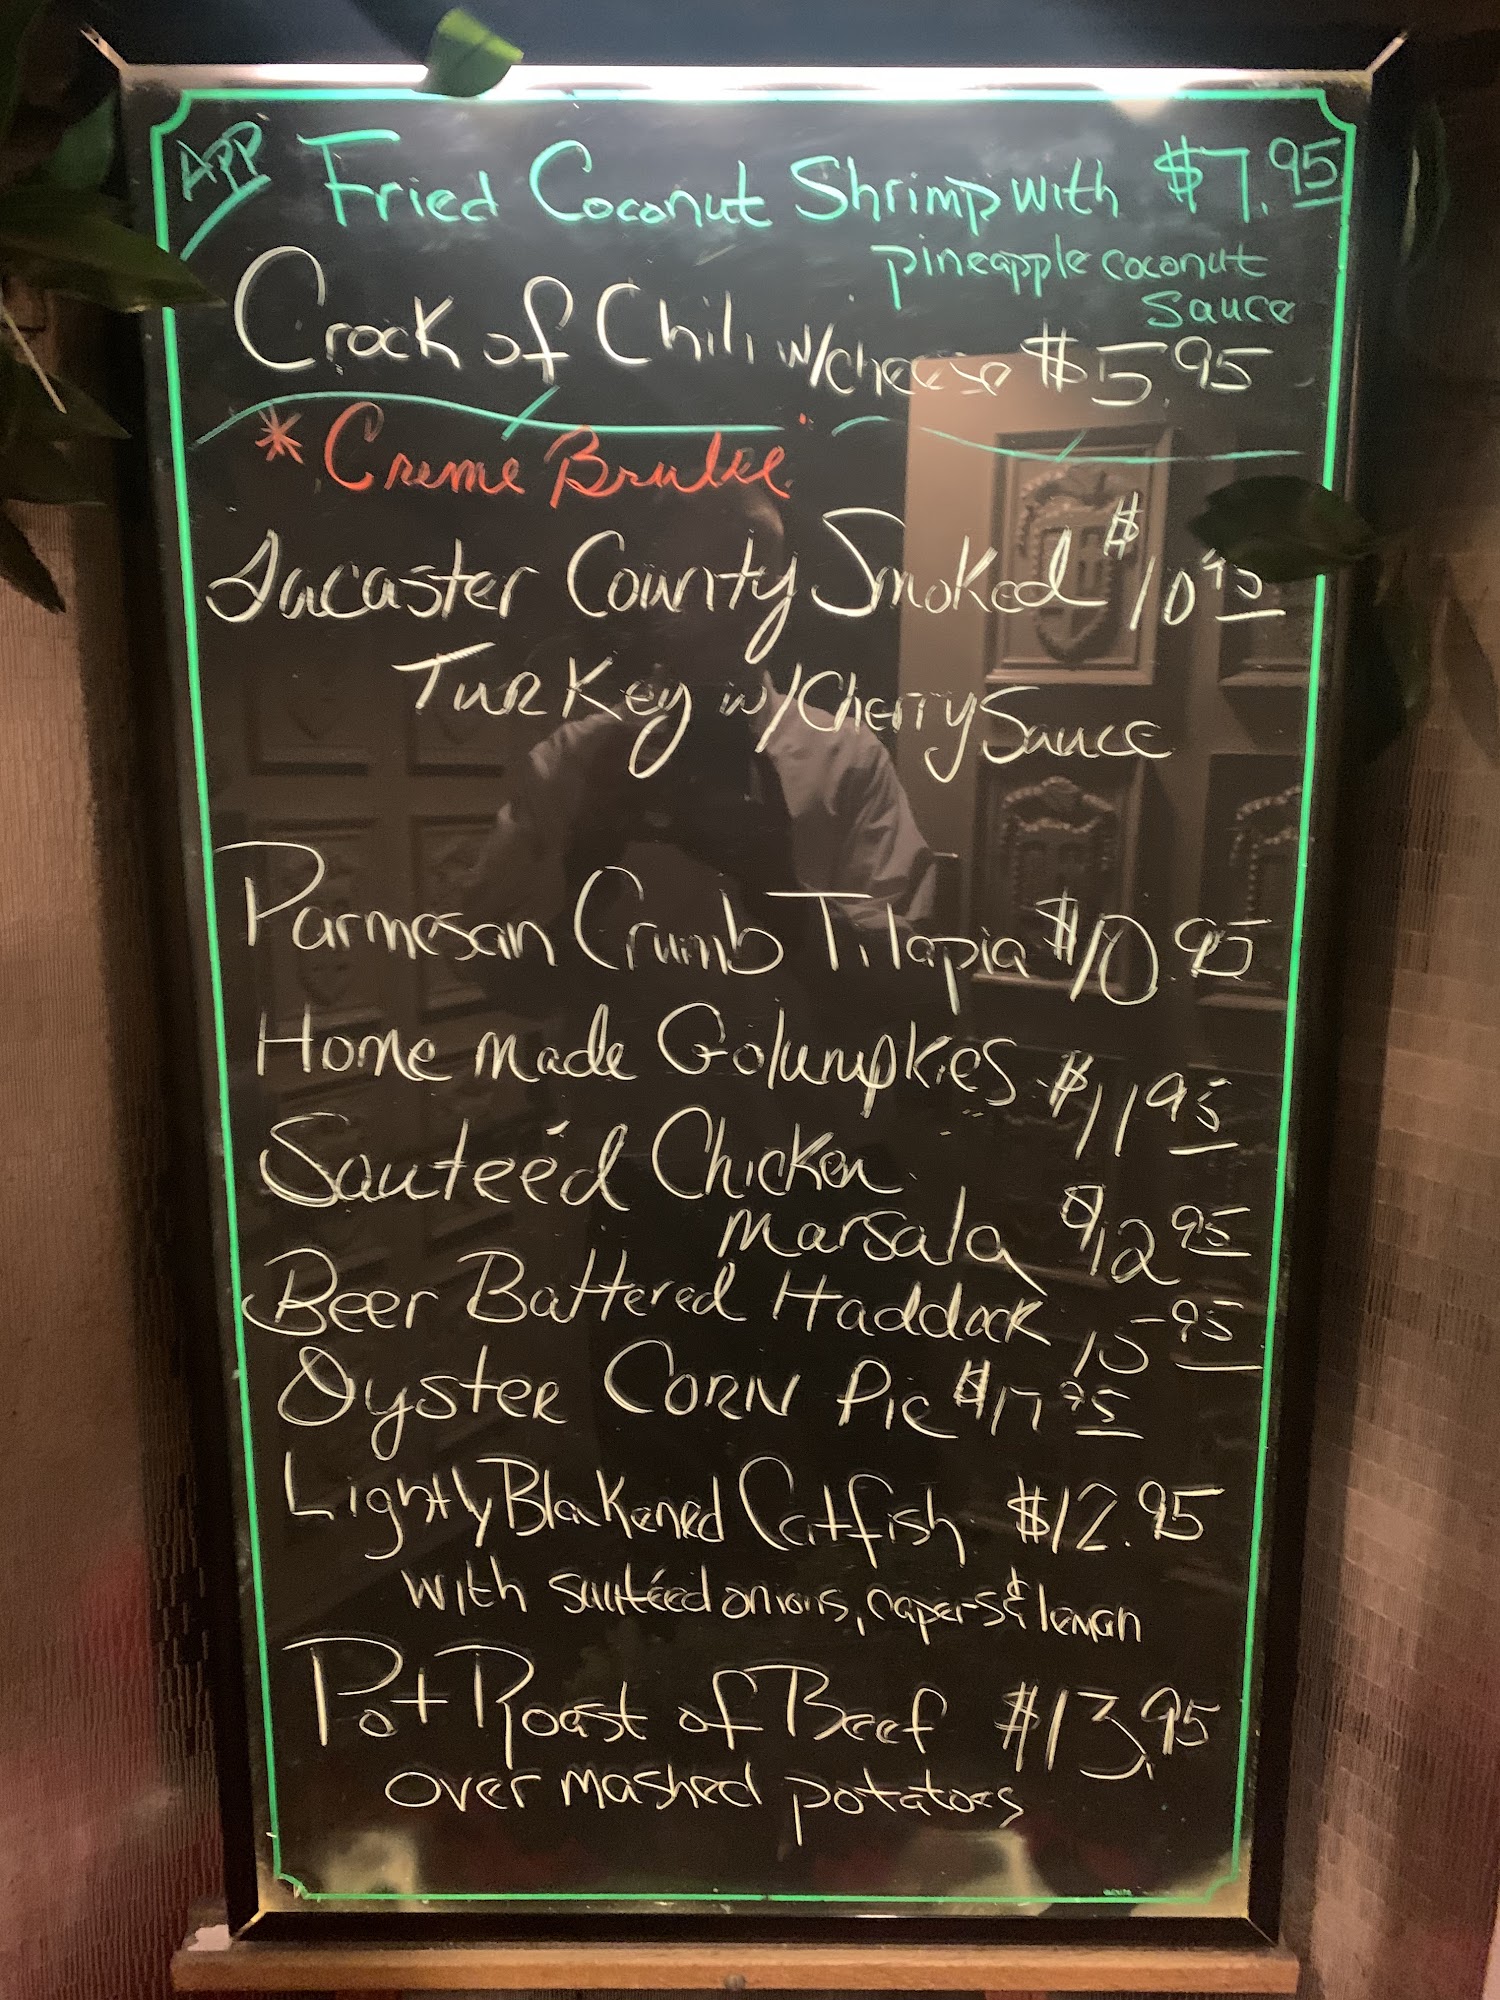 APP Fried Coconut Shrimp with $7.95
pineapple coconut
sauce
Crock of Chili w/cheese $5.95
* Creme Brulee
Lancaster County Smoked $10.95
Turkey w/Cherry Sauce
Parmesan Crumb Tilapia $10.95
Homemade Golumpkies $11.95
Sauteéd Chicken
Marsala $12.95
Beer Battered Haddock 15.95
Oyster Corn Pie $17.95
Lightly Blakened Catfish $12.95
with sautéed onions, capers & lemon
Pot Roast of Beef $13.95
over mashed potatoes